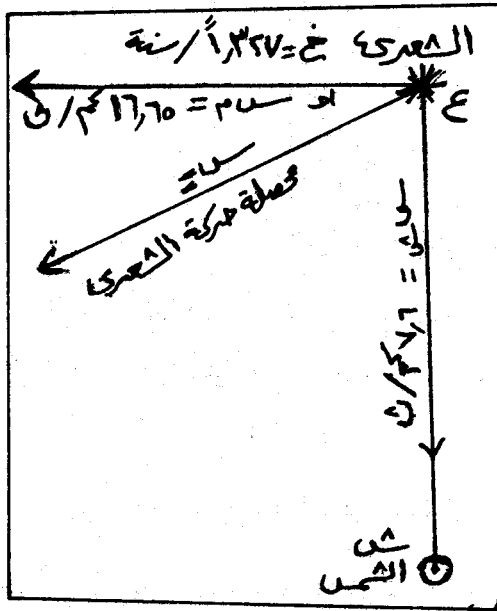 الشعرى خ = ١,٣٢٧ً / سنة
ع
او سم = ١٦,٦٥ كم/ث
محصلة حركة الشعرى
سش = ٧,٦ كم/ث
ش
الشمس